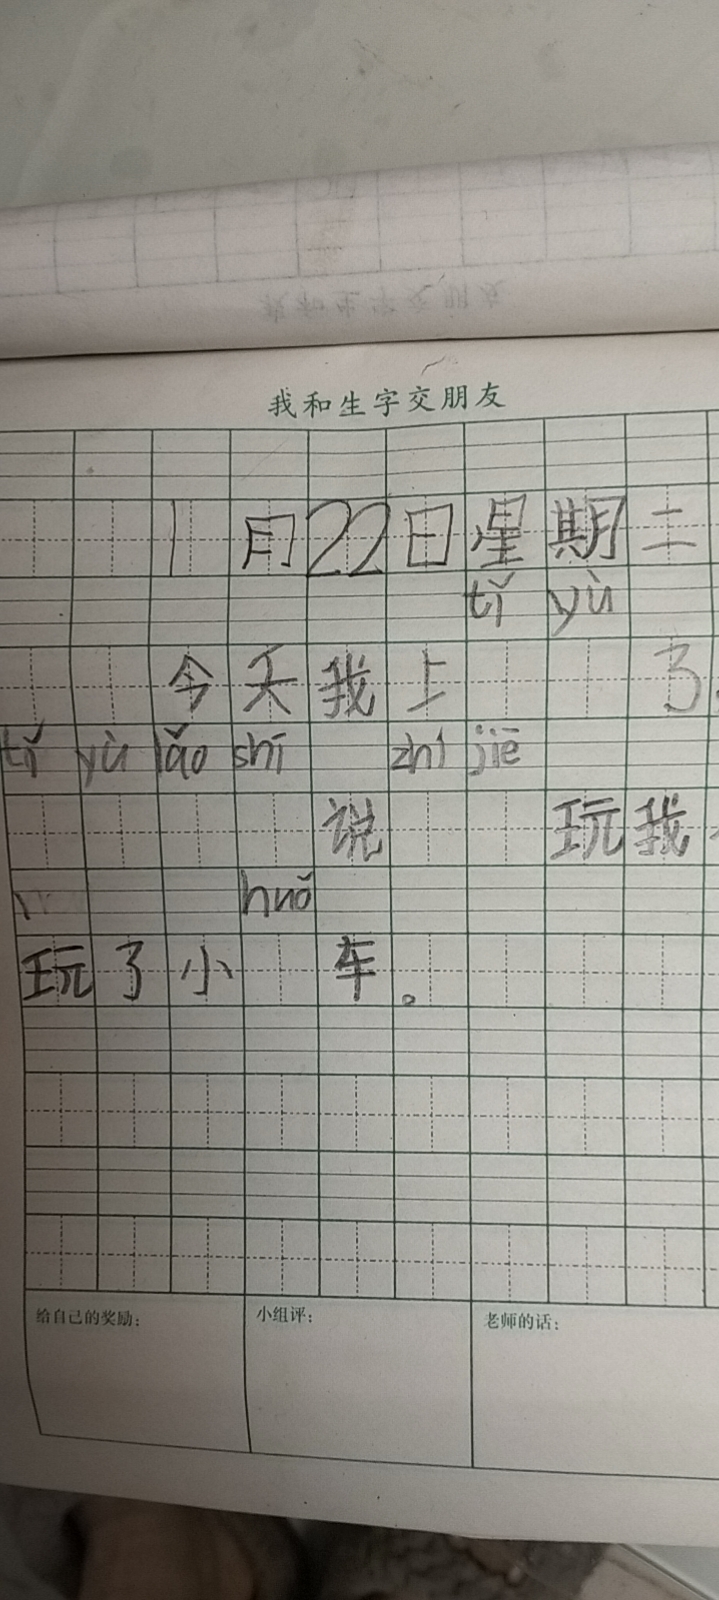 我和生字交朋友
1月22日星期二
tǐ yù
今天我上 了
tǐ yù lǎo shī zhí jiē
说 玩我
huǒ
玩了小 车。
给自己的奖励： 小组评： 老师的话：